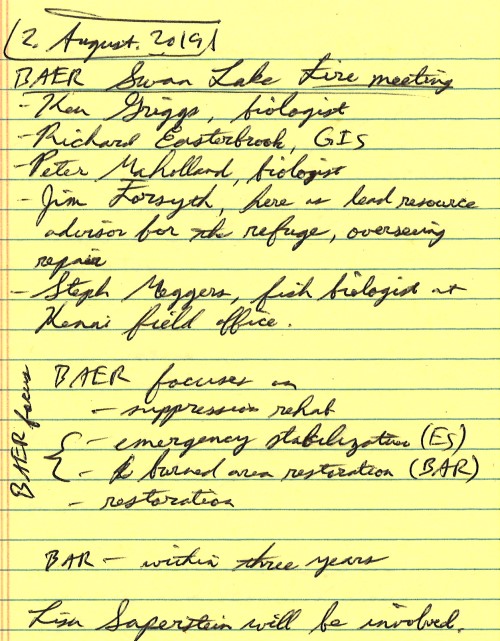 2. August. 2019
BAER Swan Lake Fire meeting
- Ken Griggs, biologist
- Richard Easterbrook, GIS
- Peter Maholland, biologist
- Jim Forsyth, here as lead resource
advisor for the refuge, overseeing
repair
- Steph Meggers, fish biologist at
Kenai field office.
BAER focus
BAER focuses on
- suppression rehab
- emergency stabilization (ES)
- burned area restoration (BAR)
- restoration
BAR - within three years
Lisa Saperstein will be involved.